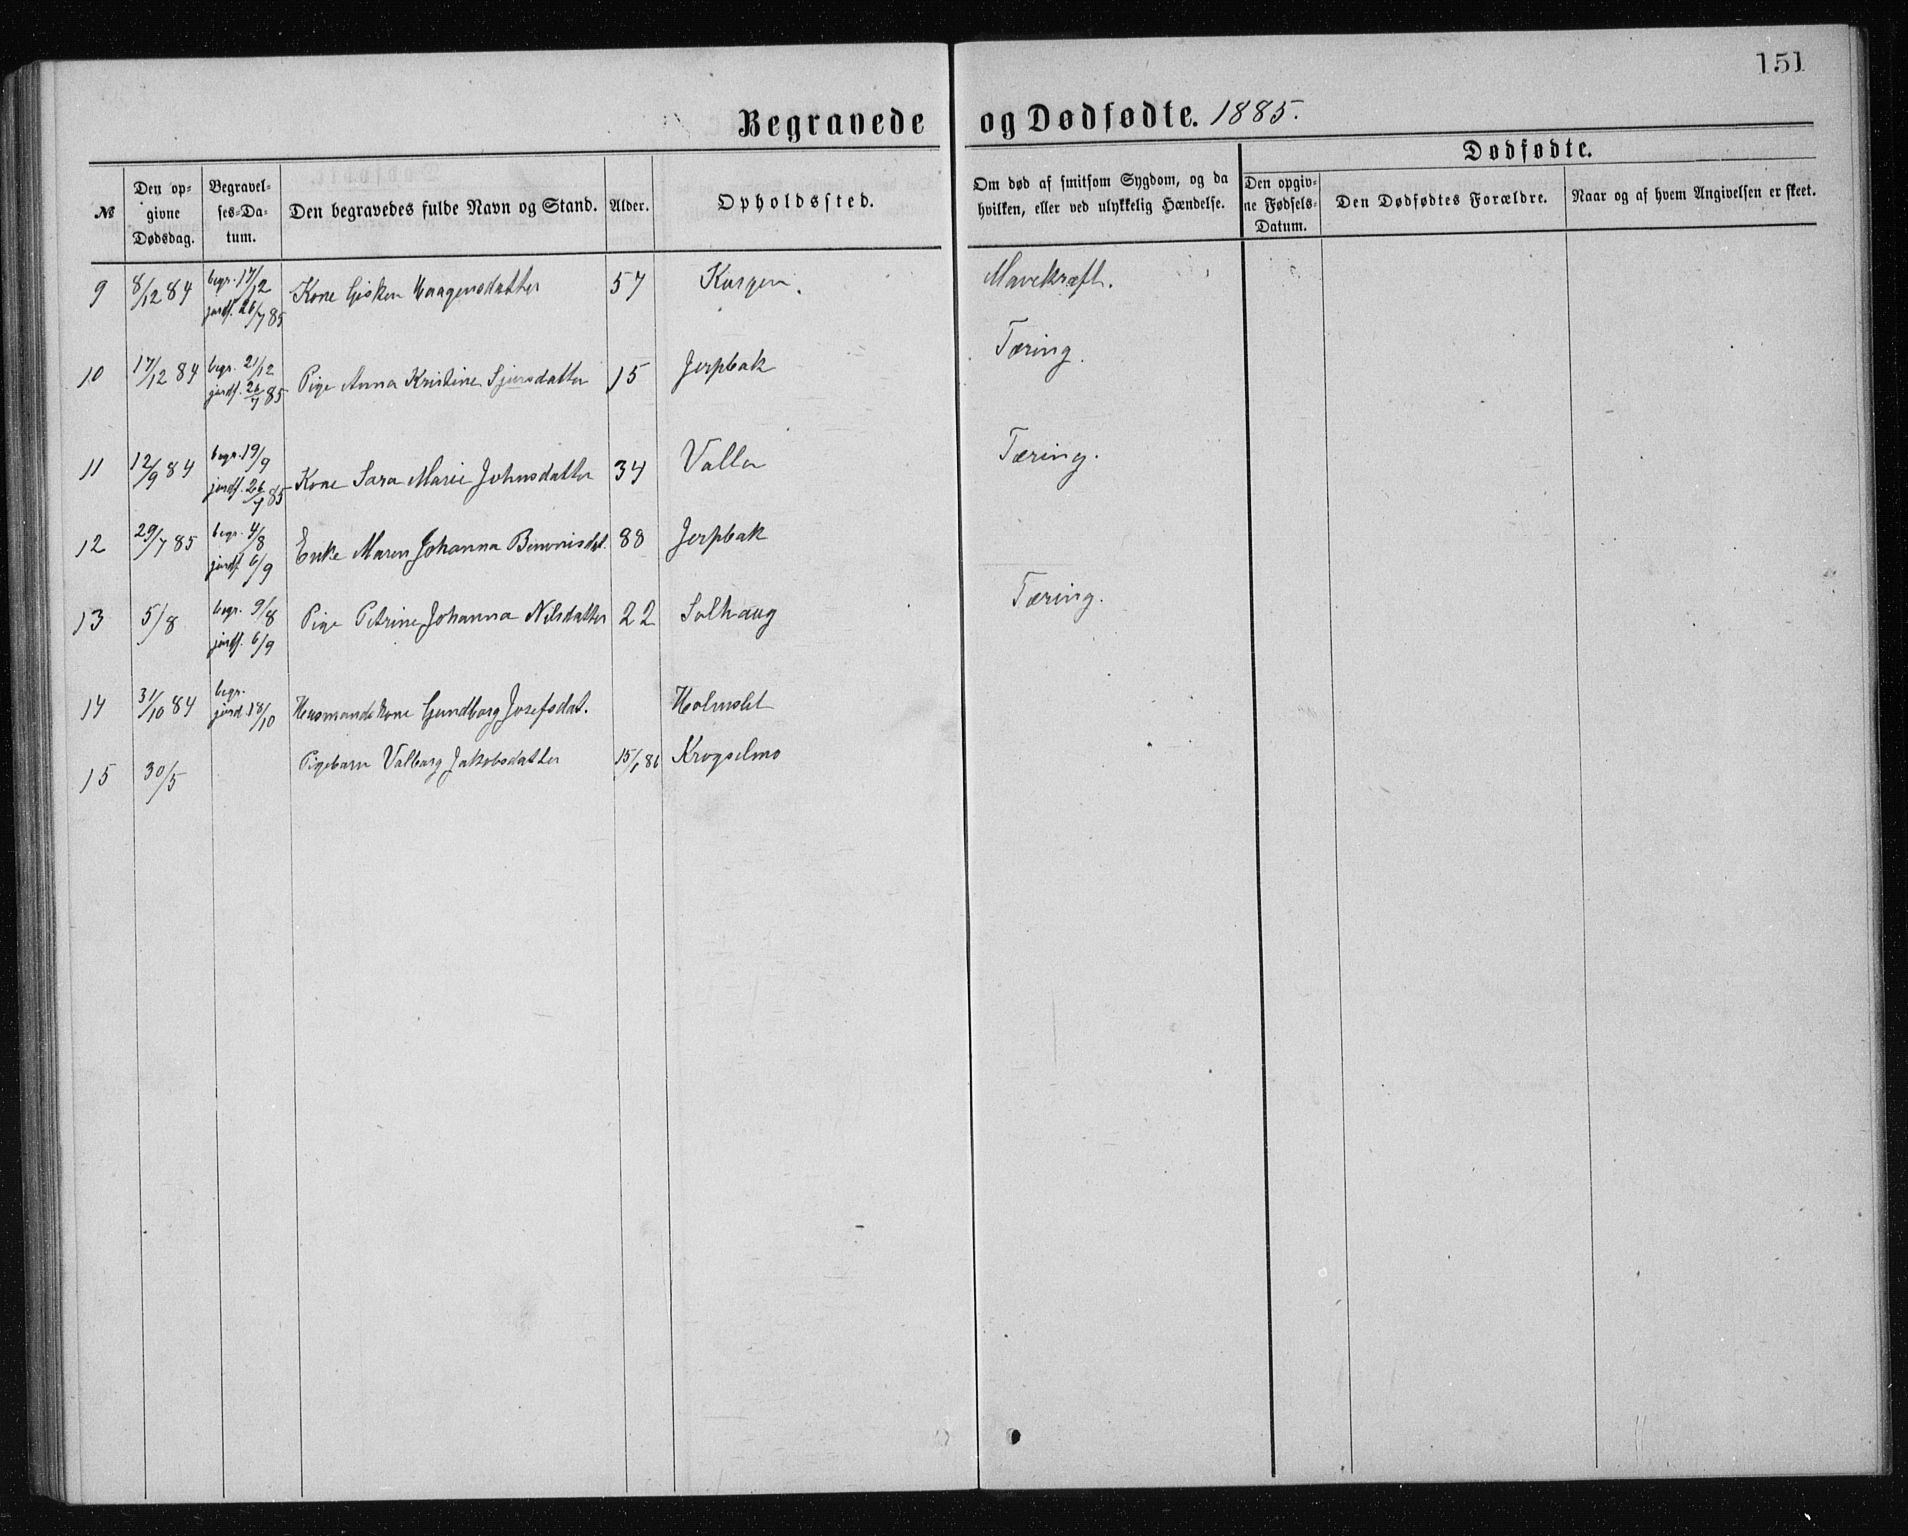 151
Begravede og Dødfødte. 1885.
Dødfødte.
№ Den op- givne Dødsdag. Begravel- ses-Da- tum. Den begravedes fulde Navn og Stand. Alder. Opholdssted. Om død af smitsom Sygdom, og da hvilken, eller ved ulykkelig Hændelse. Den opgiv- ne Fødsels- Datum. Den Dødfødtes Forældre. Naar og af hvem Angivelsen er skeet.
9 8/12 84 begr. 17/12 Kone Gisken Haagensdatter 57 Korgen. Mavekræft.
jordf. 26/7 85
10 17/12 84 begr. 21/12 Pige Anna Kristine Sjursdatter 15 Jerpbak Tæring.
jordf. 26/7 85
11 12/9 84 begr. 19/9 Kone Sara Marie Johnsdatter 34 Valla Tæring.
jordf. 26/7 85
12 29/7 85 begr. 4/8 Enke Maren Johanna 88 Jerpbak
jordf. 6/9
13 5/8 begr. 9/8 Pige Petrine Johanna Nilsdatter 22 Solhaug Tæring.
jordf. 6/9
14 31/10 84 begr. Husmandskone Gundborg Josefsdat. Holmslet
jord. 18/10
15 30/5 Pigebarn Valborg Jakobsdatter Krogselmo